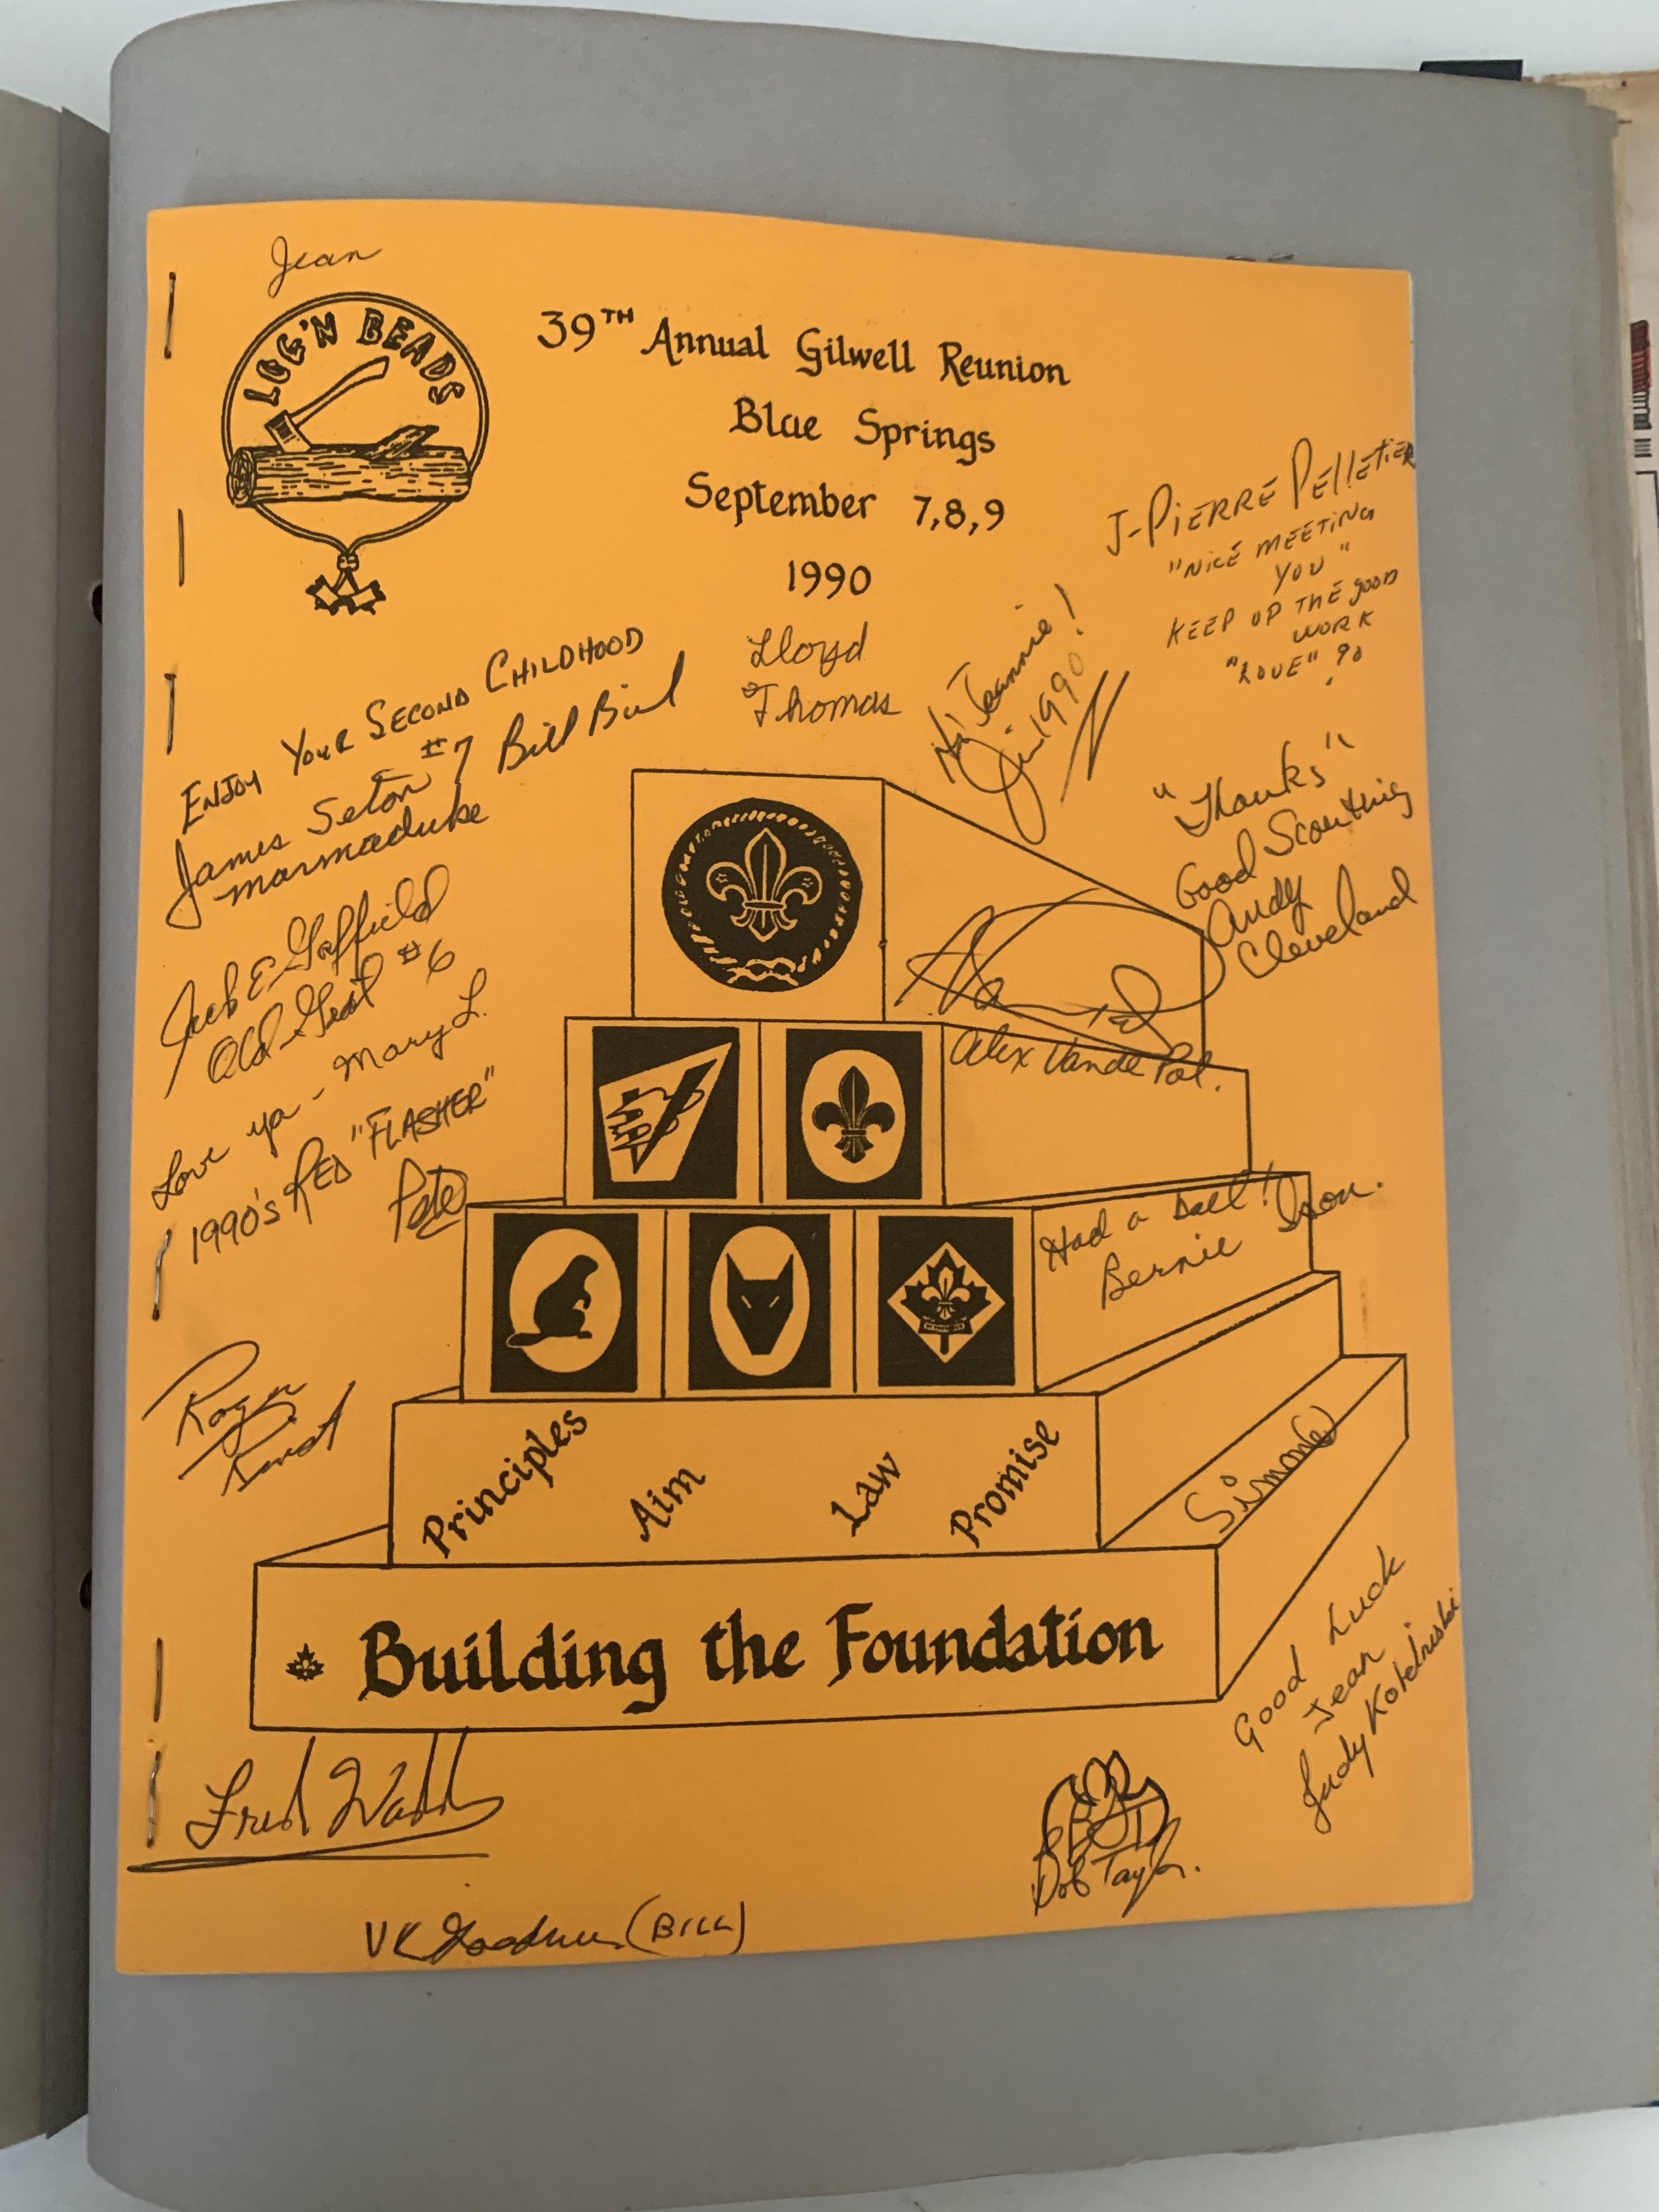 Jean
LOG'N BEADS
39TH Annual Gilwell Reunion
Blue Springs
September 7,8,9
1990
J-PIERRE PELLETIER
"NICE MEETING
YOU"
KEEP UP THE GOOD
WORK
"LOVE" 90
Lloyd
Thomas
Hi Jeannie!
Jim 1990
ENJOY YOUR SECOND CHILDHOOD
#7 Bill Bird
James Seton
marmaduke
"Thanks"
Good Scouting
Andy
Cleveland
Jack E
Old #6
Alex Vande Pol.
Love ya - Mary L.
1990's RED "FLASHER"
Pete
Had a ball!
Bernie
Roger
Principles
Aim
Law
Promise
Simone
Building the Foundation
Good Luck
Jean
Judy
Fred
Bob Taylor.
VK (BILL)